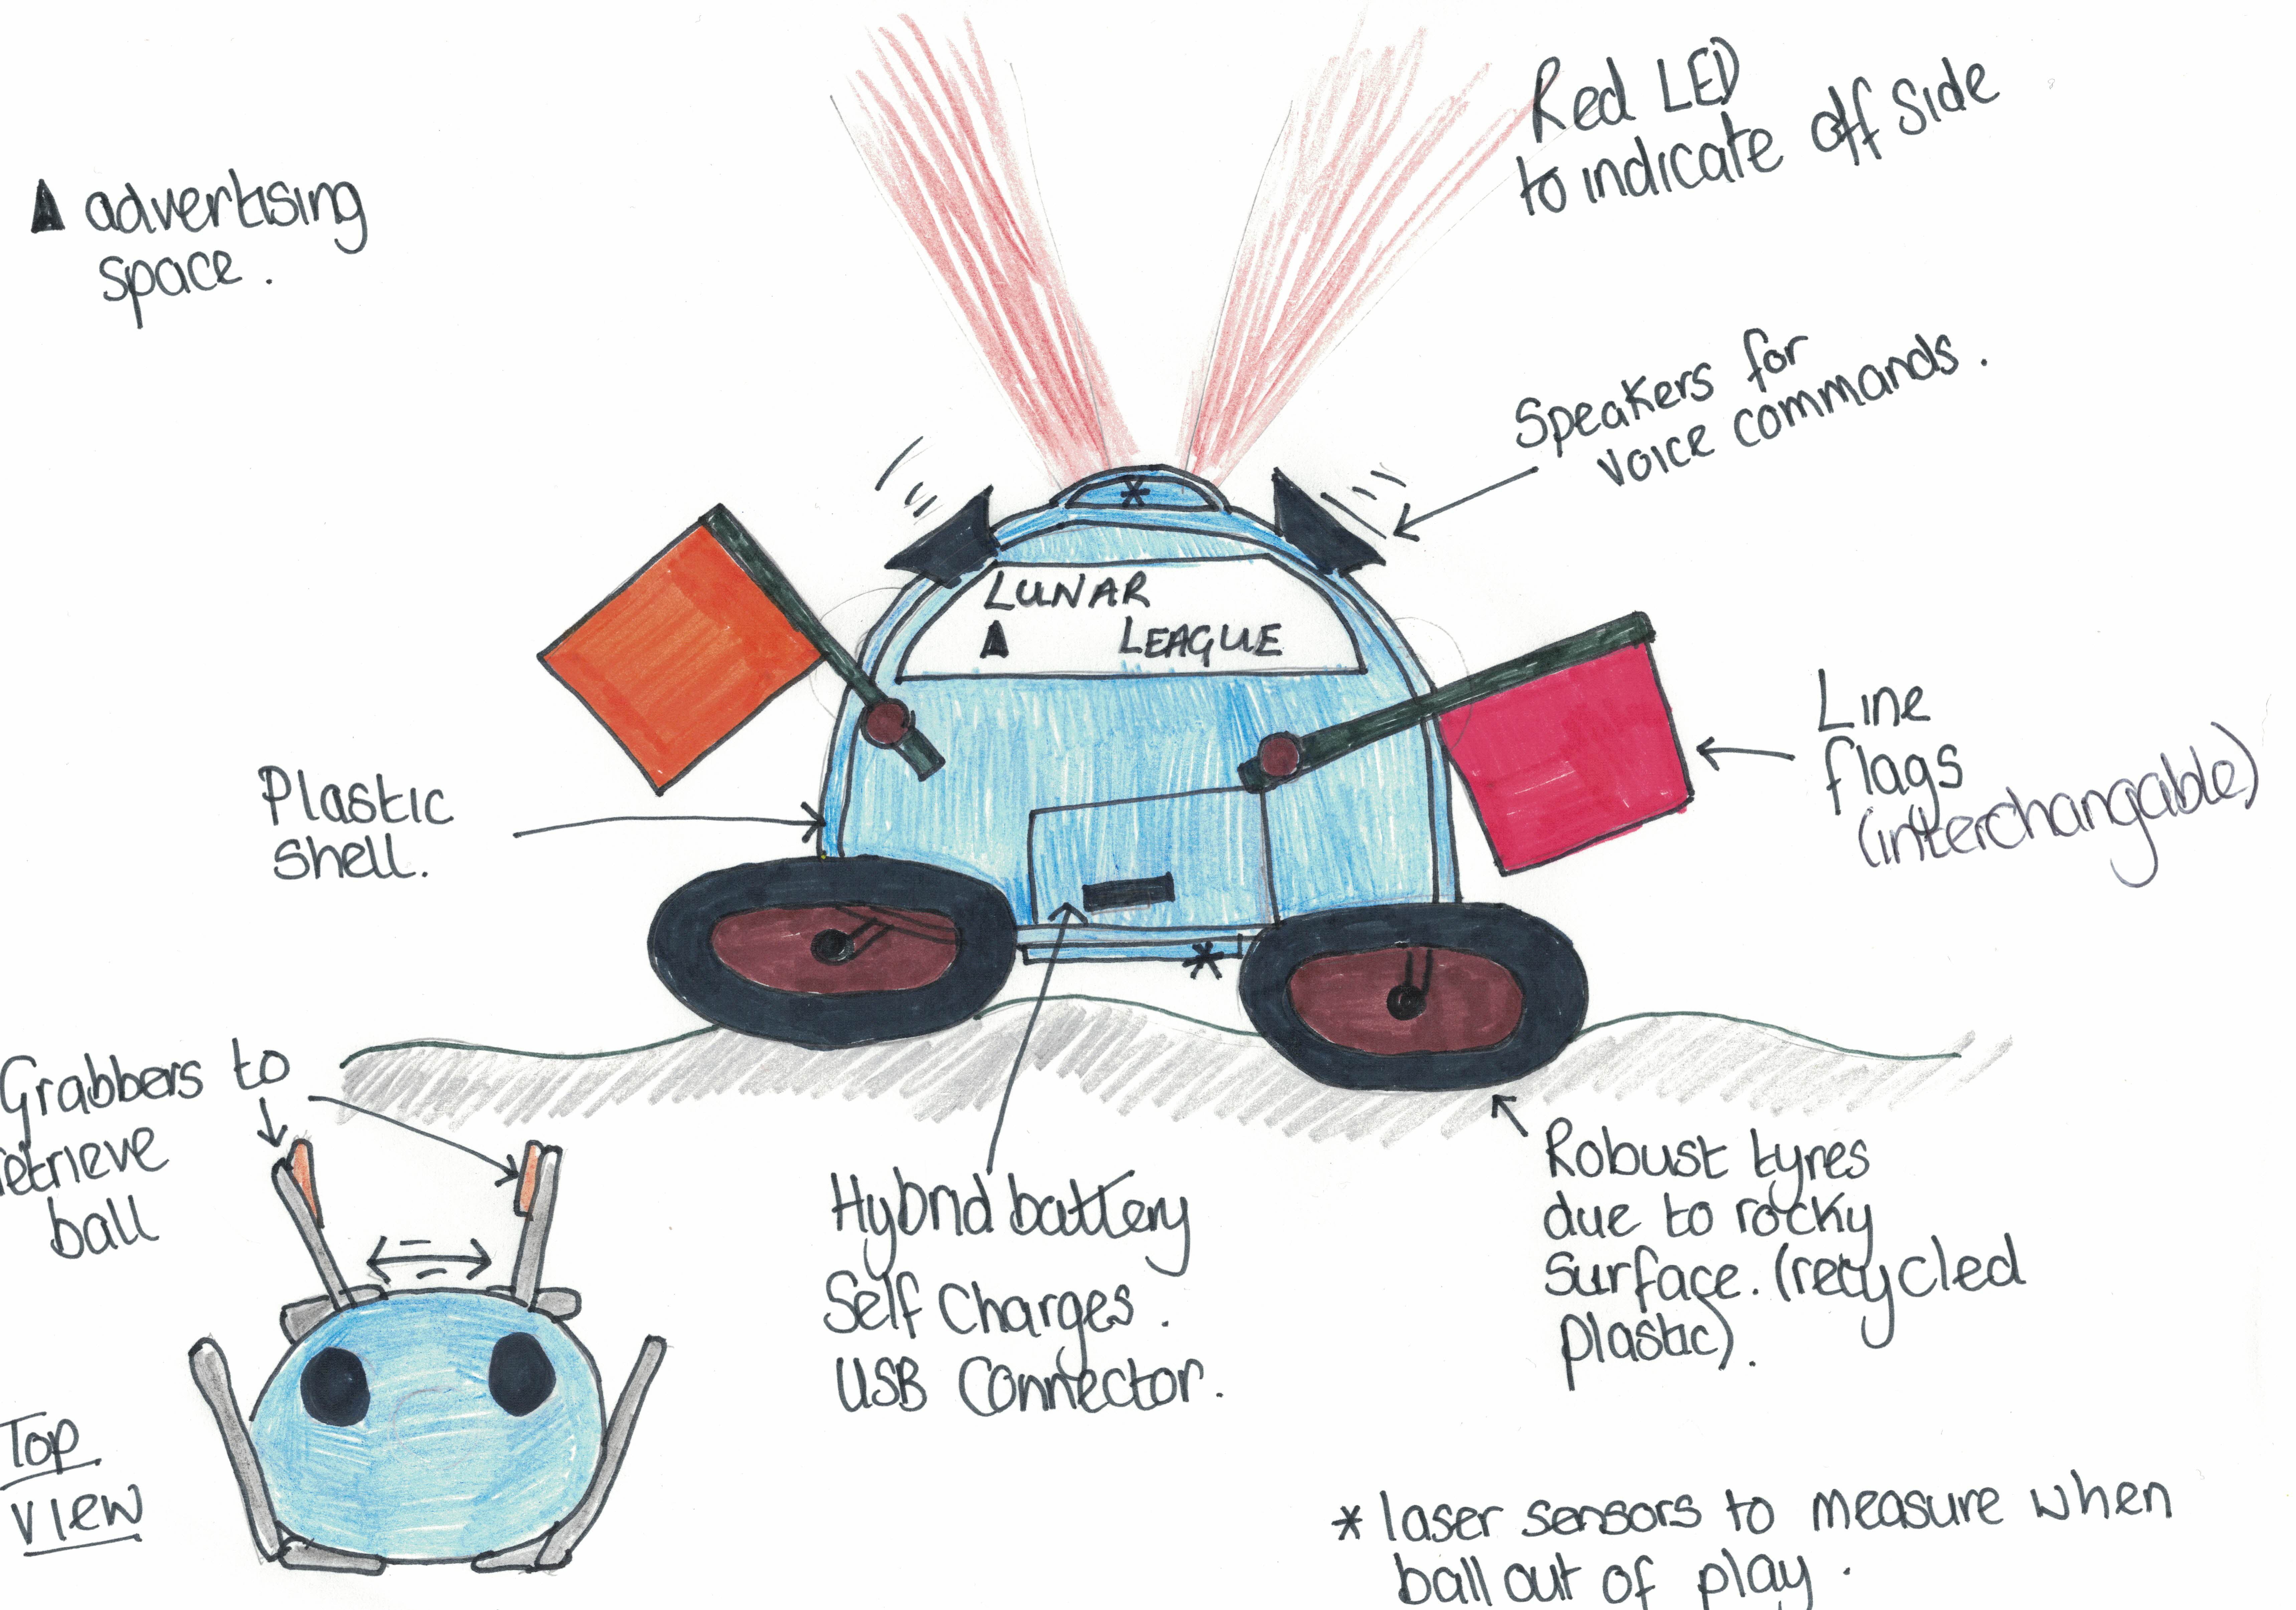 Red LED
to indicate off side
▲ advertising
space.
Speakers for
voice commands.
LUNAR
▲ LEAGUE
Line
flags
(interchangable)
Plastic
shell.
Grabbers to
retrieve
ball
Hybrid battery
Self Charges.
USB Connector.
Robust tyres
due to rocky
surface. (recycled
plastic).
Top
view
* laser sensors to measure when
ball out of play.